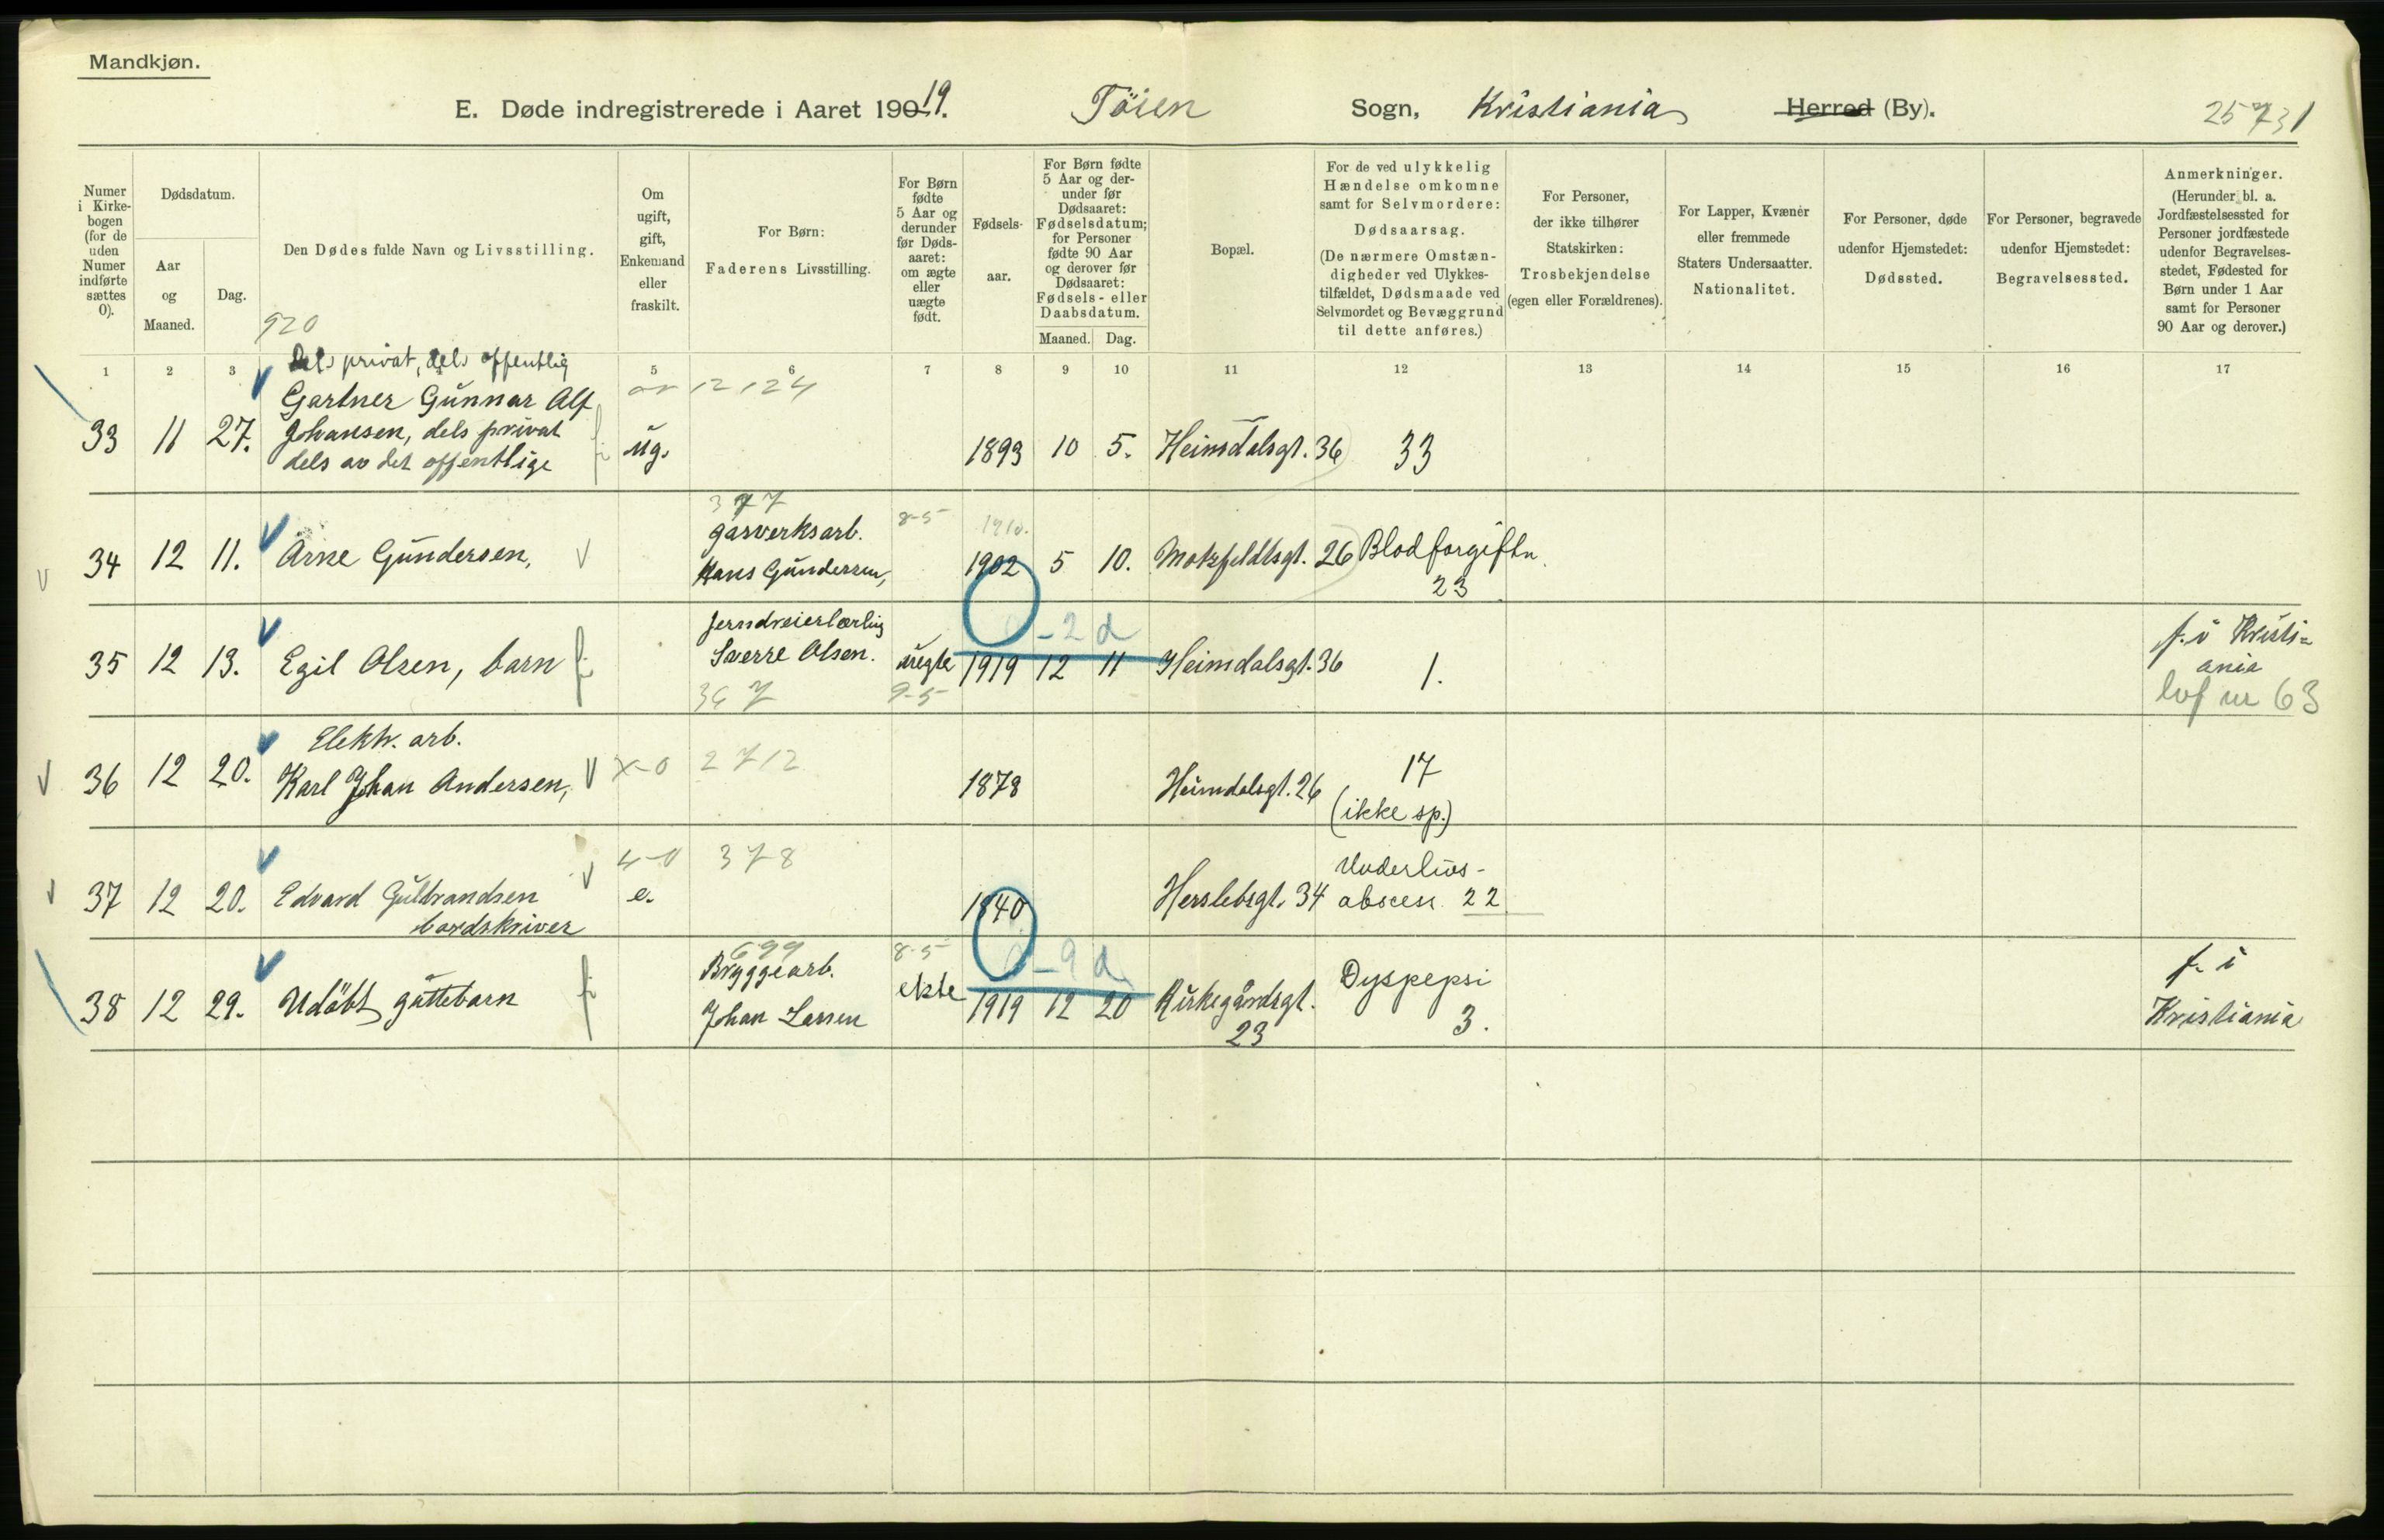 Mandkjøn.
E. Døde indregistrerede i Aaret 19019. Töien Sogn, Kristiania Herred (By).
25731
Numer i Kirke-bogen (for de uden Numer indførte sættes 0).
Dødsdatum.
Aar og Maaned.
Dag.
Den Dødes fulde Navn og Livsstilling.
Om ugift, gift, Enkemand eller fraskilt.
For Børn:
Faderens Livsstilling.
For Børn fødte 5 Aar og derunder før Døds-aaret: om ægte eller uægte født.
Fødsels-aar.
For Børn fødte 5 Aar og der-under før Dødsaaret: Fødselsdatum; for Personer fødte 90 Aar og derover før Dødsaaret: Fødsels- eller Daabsdatum.
Maaned. Dag.
Bopæl.
For de ved ulykkelig Hændelse omkomne samt for Selvmordere:
Dødsaarsag.
(De nærmere Omstæn-digheder ved Ulykkes-tilfældet, Dødsmaade ved Selvmordet og Bevæggrund til dette anføres.)
For Personer, der ikke tilhører Statskirken:
Trosbekjendelse
(egen eller Forældrenes).
For Lapper, Kvæner eller fremmede Staters Undersaatter.
Nationalitet.
For Personer, døde udenfor Hjemstedet:
Dødssted.
For Personer, begravede udenfor Hjemstedet:
Begravelsessted.
Anmerkninger.
(Herunder bl. a. Jordfæstelsessted for Personer jordfæstede udenfor Begravelses-stedet, Fødested for Børn under 1 Aar samt for Personer 90 Aar og derover.)
1 2 3 5 6 7 8 9 10 11 12 13 14 15 16 17
920
Dels privat, dels offentlig
12124
Gartner Gunnar Alf
33 11 27. Johansen, dels privat ug. 1893 10 5. Heimdalsgt. 36 33
dels av det offentlige
377 8-5 1910.
gasverksarb.
34 12 11. Arne Gundersen, Hans Gundersen, 1902 5 10. Motzfeldtsgt. 26 Blodforgiftn.
23
Jerndreierlærling 0-2 d
35 12 13. Egil Olsen, barn Sverre Olsen. uegte 1919 12 11 Heimdalsgt. 36 1. f. i Kristi=
ania
367 9-5 lof nr 63
Elektr. arb.
36 12 20. Karl Johan Andersen, x-0 2712 1878 Heimdalsgt. 26 17
(ikke sp.)
4-0 378 Underlivs-
37 12 20. Edvard Gulbrandsen e. 1840 Herslebsgt. 34 abscess 22
bordskriver
699 8-5 0-9 d
Bryggearb.
38 12 29. Udöbt guttebarn Johan Larsen ekte 1919 12 20 Kirkegårdsgt. Dyspepsi f. i
23 3. Kristiania